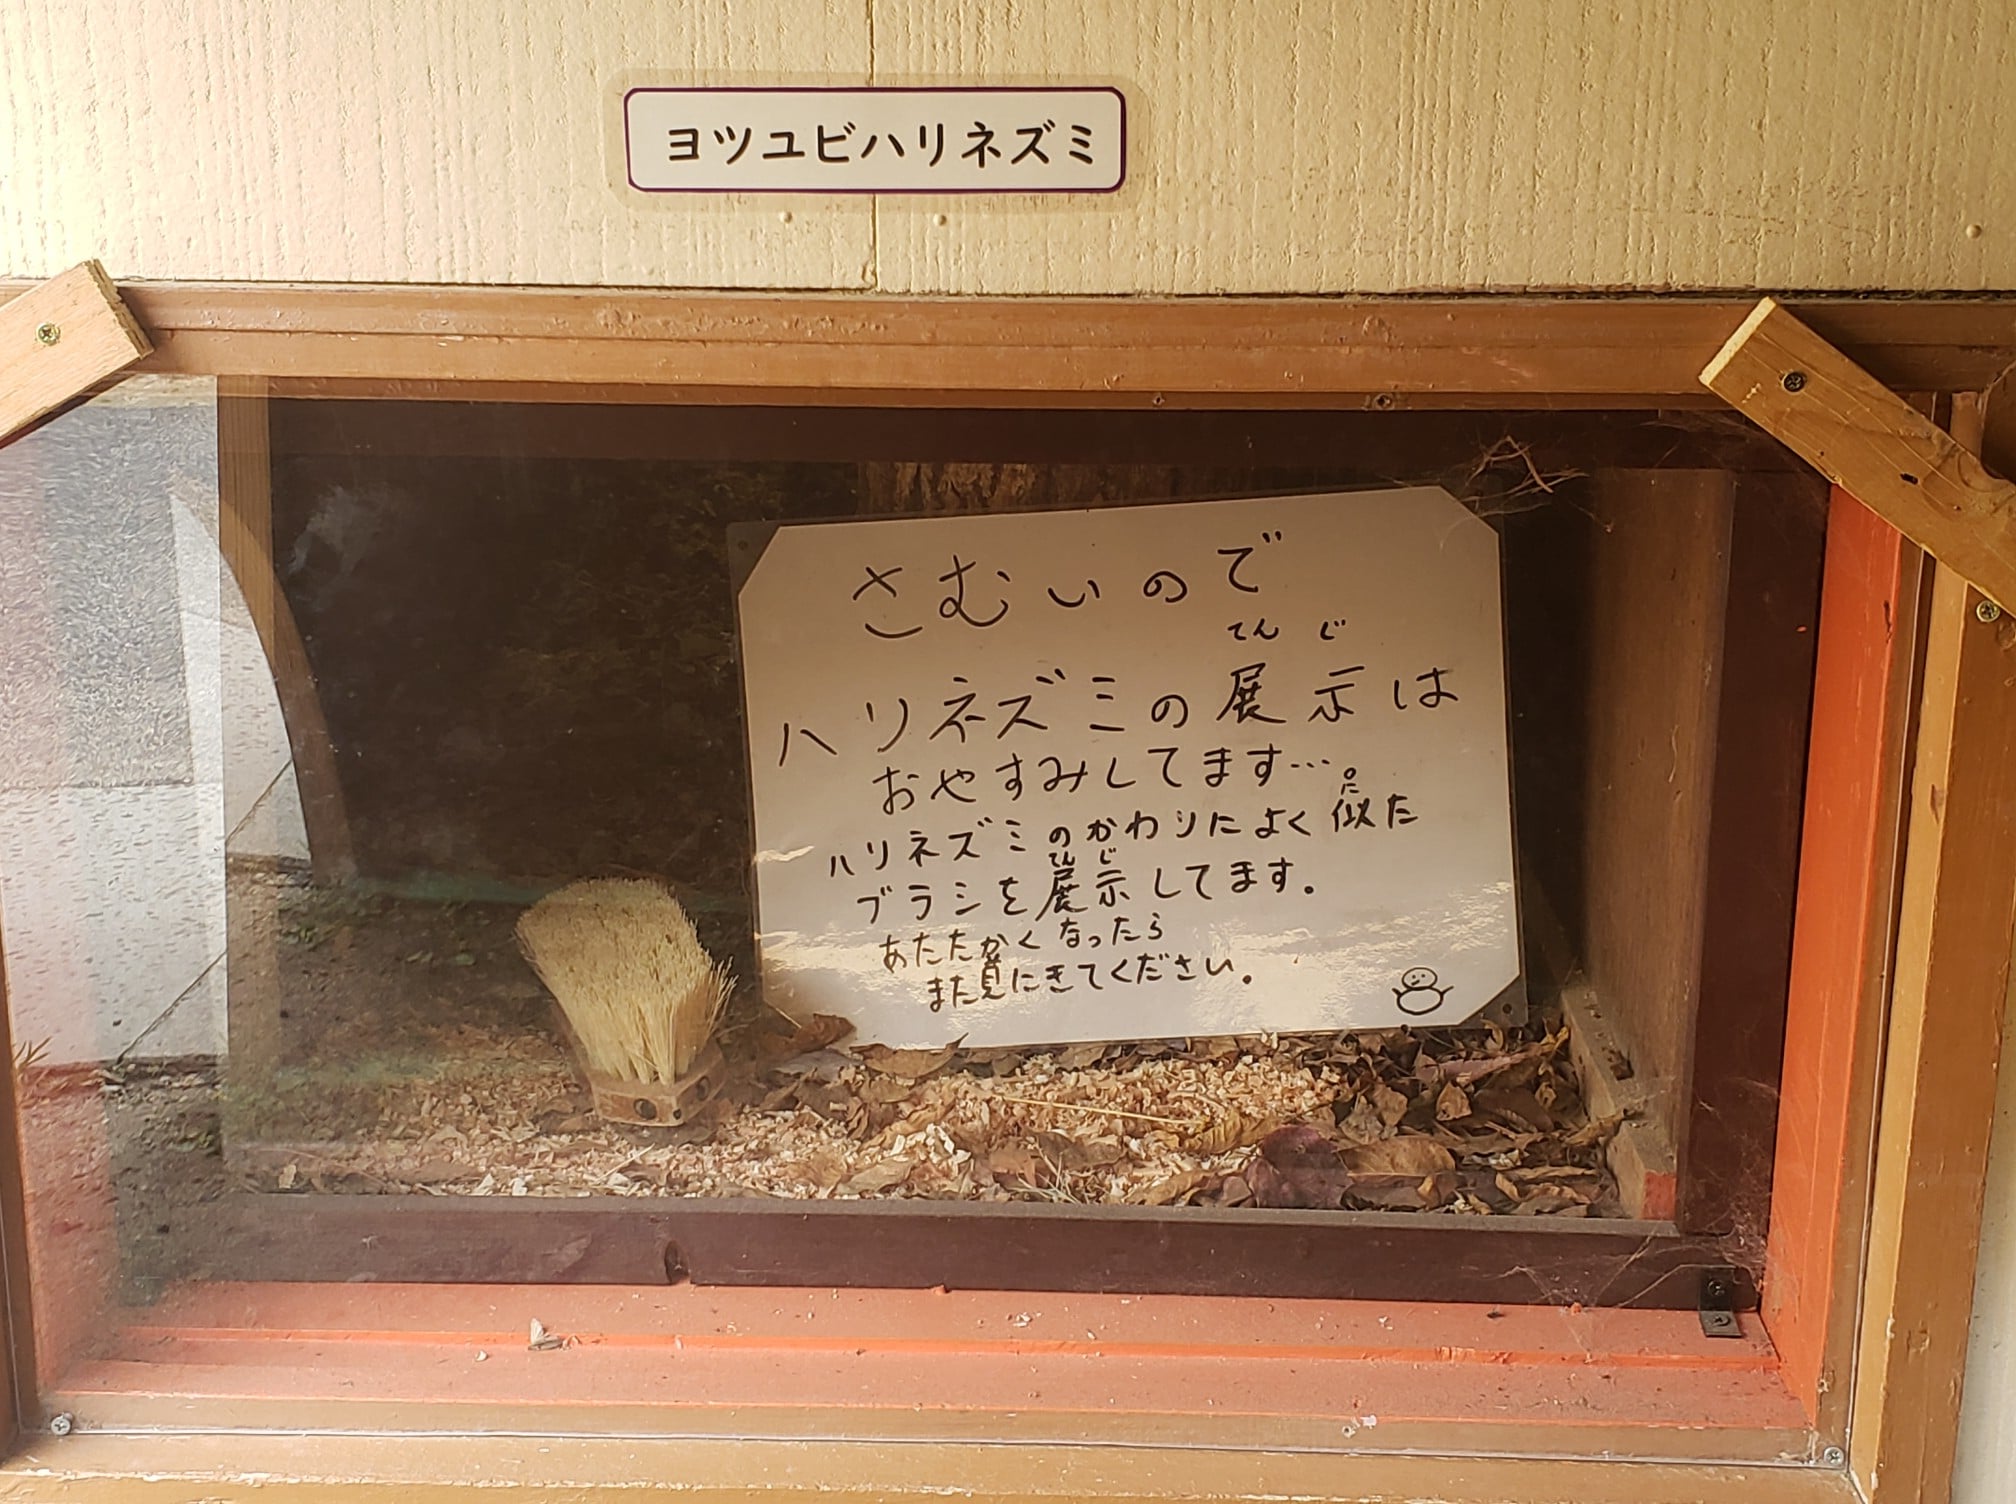 ヨツユビハリネズミ
さむいので
てんじ
ハリネズミの展示は
おやすみしてます…。
に
ハリネズミのかわりによく似た
てんじ
ブラシを展示してます。
あたたかくなったら
また見にきてください。